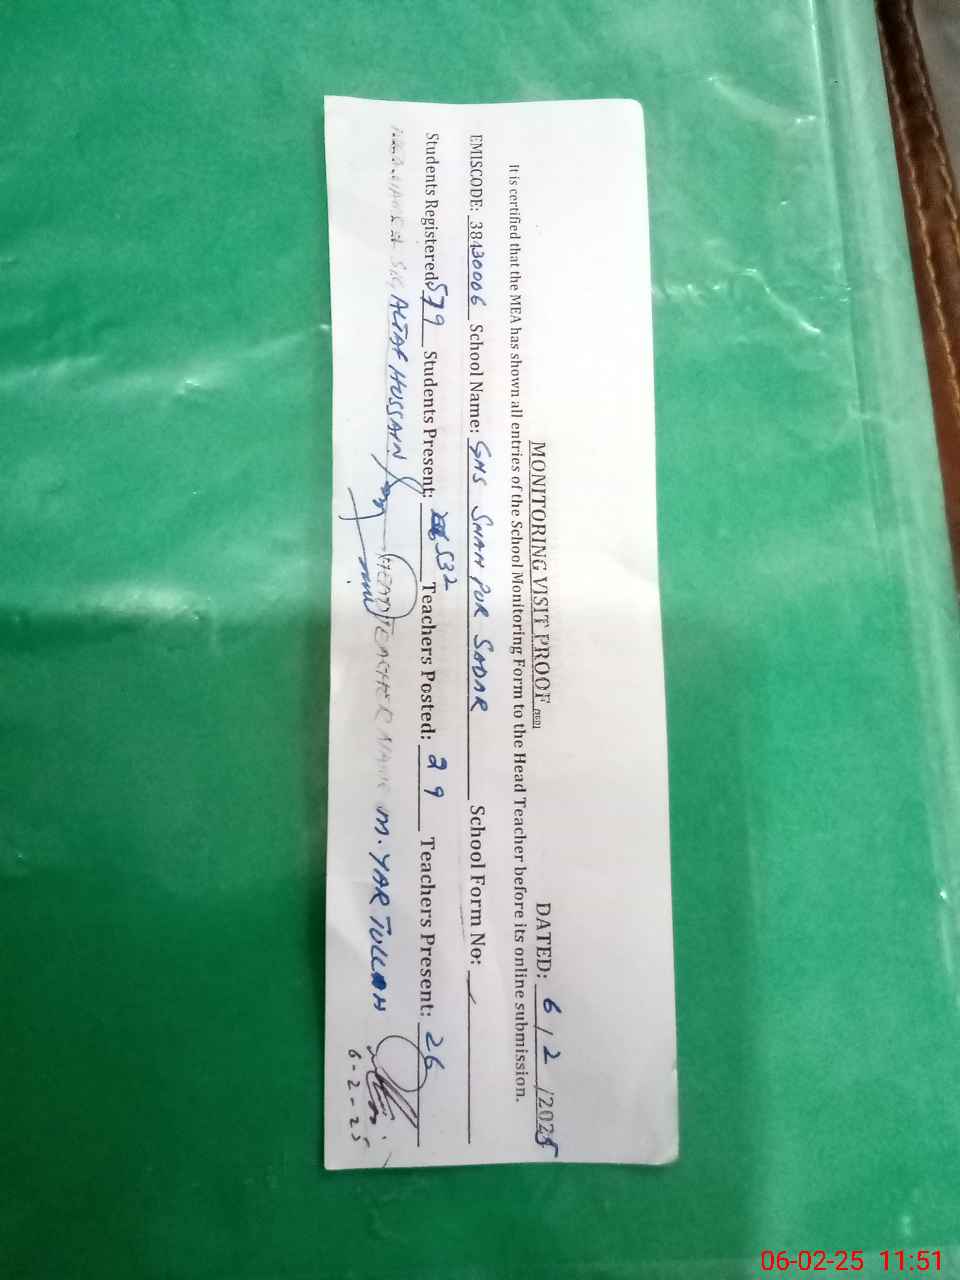 MONITORING VISIT PROOF DATED: 6/2/2025
It is certified that the MEA has shown all entries of the School Monitoring Form to the Head Teacher before its online submission.
EMISCODE: 38430006 School Name: GHS SHAH PUR SADAR School Form No:
Students Registered 579 Students Present: 532 Teachers Posted: 29 Teachers Present: 26
ALTAF HUSSAIN HEAD TEACHER NAME M. YAR TULLAH
6-2-25
06-02-25 11:51